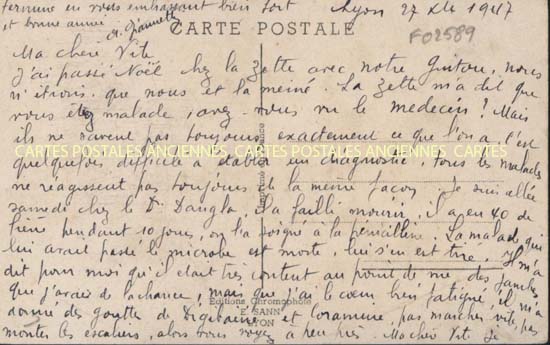 termine en vous embrassant bien fort
et bonne année
Lyon 27 1947
F02589
CARTE POSTALE
Ma chère Vite
J'ai passé Noël chez la Zette avec notre Guitou, nous
n'étions que nous et la mémé. La Zette m'a dit que
vous étiez malade, avez-vous vu le médecin? Mais
ils ne savent pas toujours exactement ce que l'on a c'est
CARTES POSTALES ANCIENNES CARTES POSTALES ANCIENNES CARTES
quelquefois difficile à établir un diagnostic, tous les malades
ne réagissent pas toujours de la même façon. Je suis allée
samedi chez le Dr Dangla. Il a failli mourir, il a eu 40 de
fièvre pendant 10 jours, on l'a soigné à la pénicilline. La malade qui
lui avait passé le microbe est morte, lui s'en est tiré. Il m'a
dit pour moi qu'il était très content au point de vue des jambes,
que j'avais de la chance, mais que j'ai le coeur bien fatigué, il m'a
Editions Chromophote
E. SANN
LYON
donné des gouttes de Digitaline et coramine, pas marcher vite, pas
monter les escaliers, alors vous voyez à peu près. Ma chère Vite je